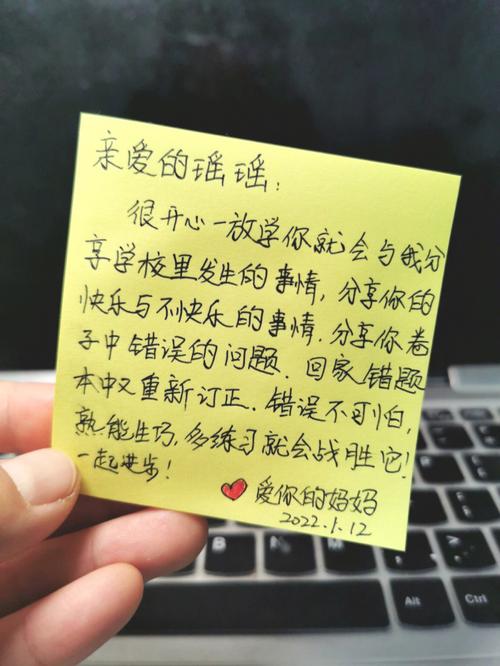 亲爱的瑶瑶：
很开心一放学你就会与我分
享学校里发生的事情，分享你的
快乐与不快乐的事情．分享你卷
子中错误的问题．回家错题
本中又重新订正．错误不可怕，
熟能生巧，多练习就会战胜它！
一起进步！
爱你的妈妈
2022.1.12
B
N
M
Alt
Ctrl